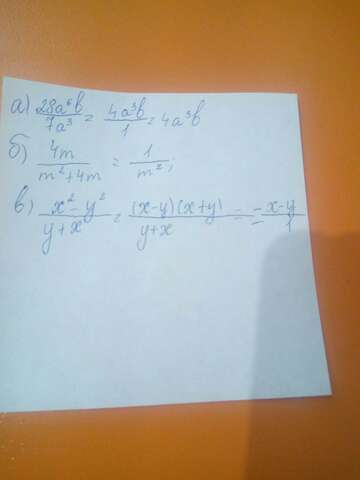 а) 28a⁶b/7a³ = 4a³b/1 = 4a³b
б) 4m/m²+4m = 1/m²;
в) x²-y²/y+x = (x-y)(x+y)/y+x = -x-y/1